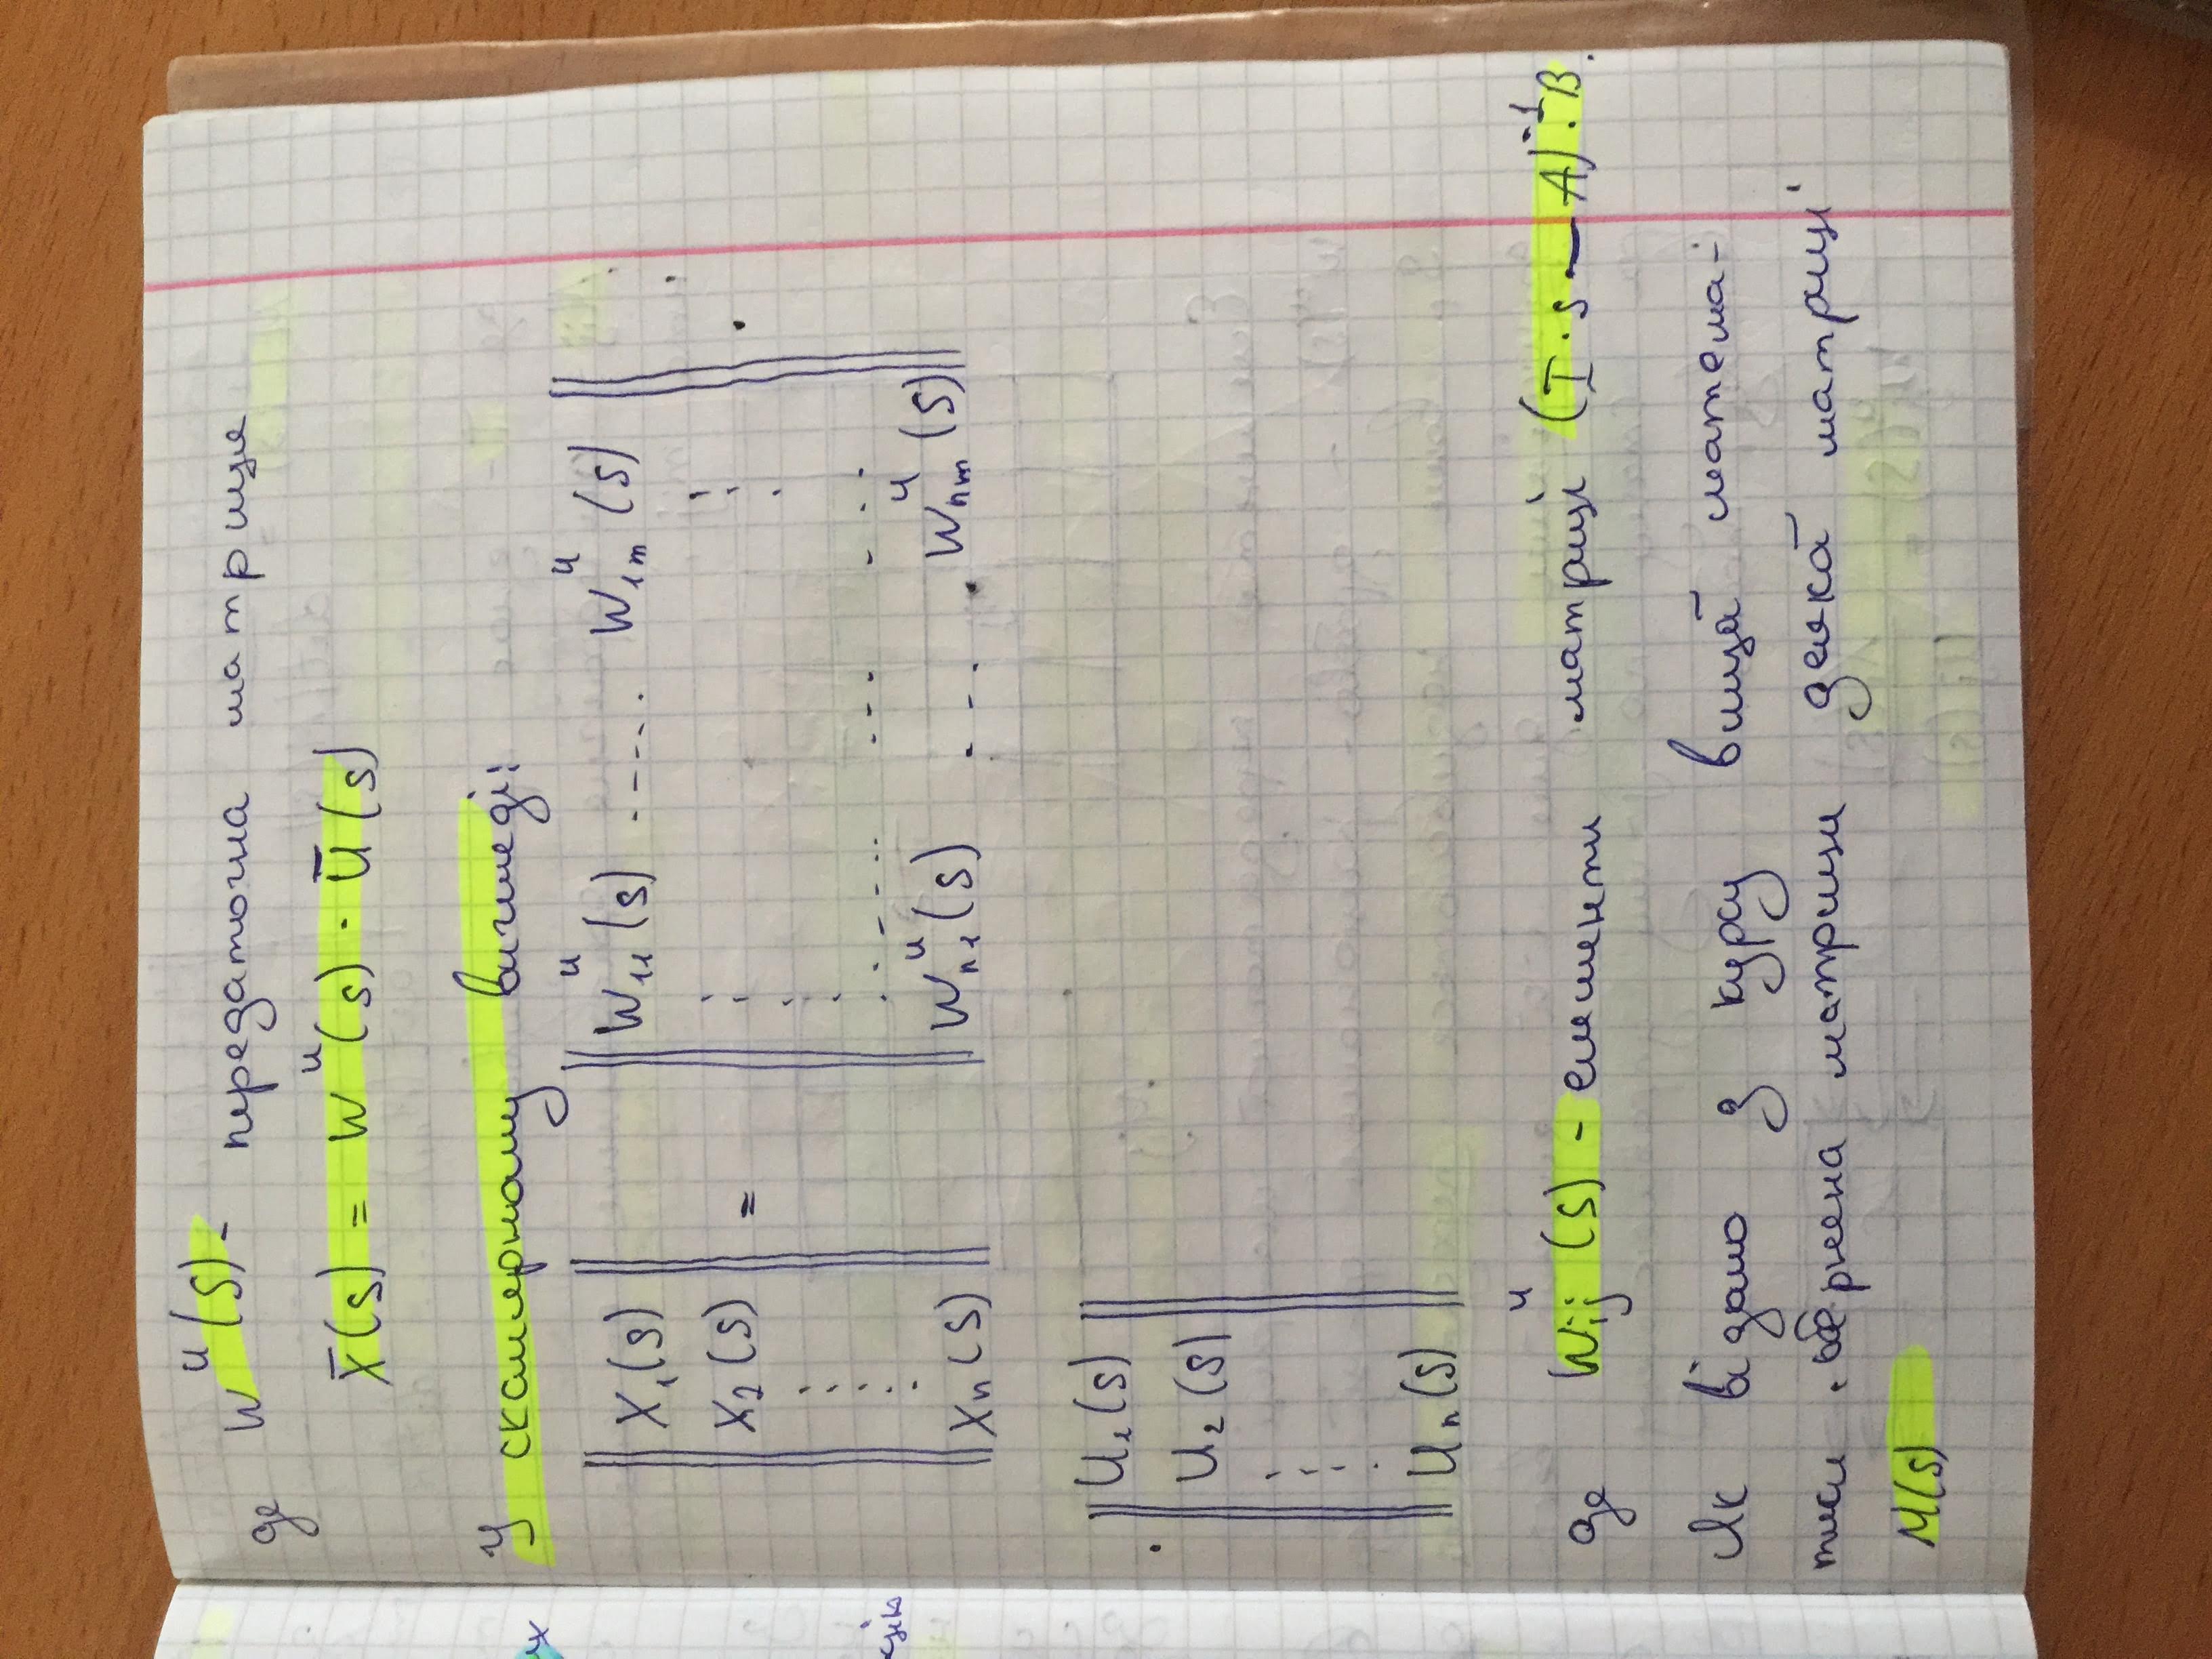 де W^u(S) - передаточна матриця
X̄(s) = W^u(s) · Ū(s)
У скалярному вигляді:
‖ X₁(s) ‖ ‖ W₁₁^u(s) ..... W₁ₘ^u(s) ‖
‖ X₂(s) ‖ = ‖ ⋮ ⋮ ‖ ·
‖ ⋮ ‖ ‖ ...... ... ... ‖
‖ Xₙ(s) ‖ ‖ Wₙ₁^u(s) .... Wₙₘ^u(s) ‖
‖ U₁(s) ‖
· ‖ U₂(s) ‖
‖ ⋮ ‖
‖ Uₙ(s) ‖
де Wᵢⱼ^u(s) - елементи матриці (I·s - A)⁻¹·B.
Як відомо з курсу вищої матема-
тики обернена матриця деякої матриці
M(s)